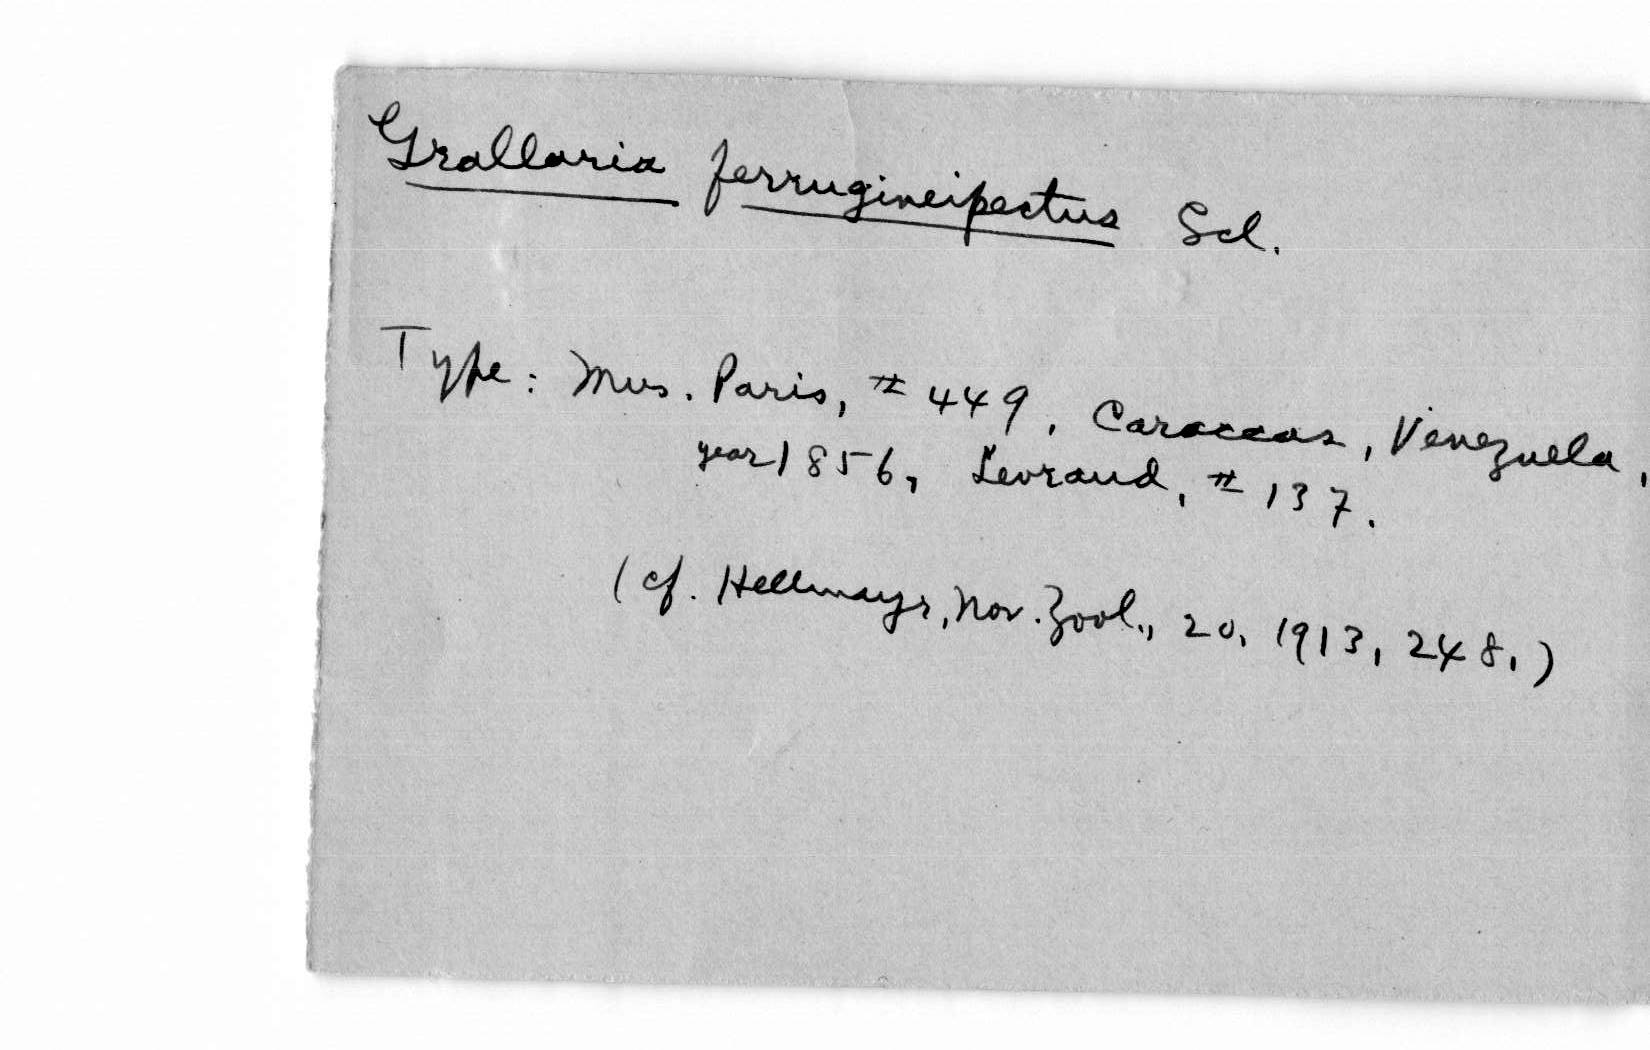 Grallaria ferrugineipectus Scl.
Type: Mus. Paris, # 449, Caraccas, Venezuela,
year 1856, Levraud, # 137.
(cf. Hellmayr, Nov. Zool., 20, 1913, 248.)